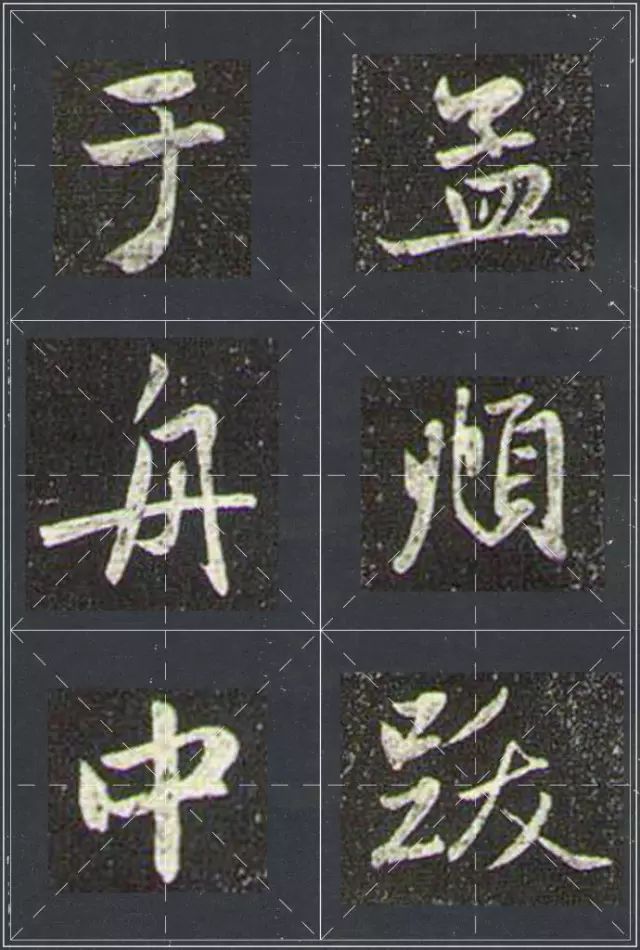 孟頫跋
于舟中